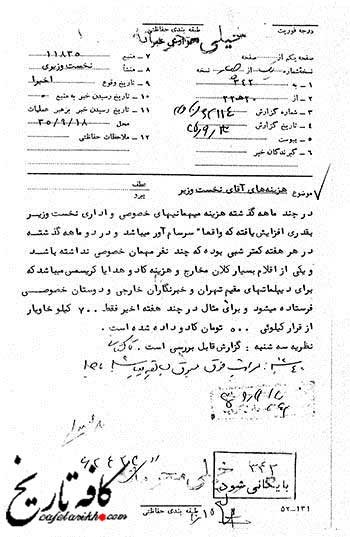 درجه فوریت
طبقه بندی حفاظتی
خیلی محرمانه
صفحه یکم از صفحه
نسخه شماره از نسخه
۱ – به ۳۴۲
۲ – از ۲۲ هـ ۲۰
۳ – شماره گزارش
۴ – تاریخ گزارش
۵ – پیوست
۶ – گیرندگان خبر
۷ – منبع ۱۱۸۳۵
۸ – منشأ نخست وزیری
۹ – تاریخ وقوع اخیرا
۱۰ – تاریخ رسیدن خبر به منبع
۱۱ – تاریخ رسیدن خبر برهبر عملیات
محل ۳۵/۹/۱۸
۱۲ – ملاحظات حفاظتی
موضوع هزینه های آقای نخست وزیر
عطف
پیرو
در چند ماهه گذشته هزینه میهمانیهای خصوصی و اداری نخست وزیر
بقدری افزایش یافته که واقعا" سرسام آور میباشد و در دو ماهه گذشته
در هر هفته کمتر شبی بوده که چند نفر مهمان خصوصی نداشته باشد
و یکی از اقلام بسیار کلان مخارج و هزینه کادو و هدایا کریسمس میباشد که
برای دیپلماتهای مقیم تهران و خبرنگاران خارجی و دوستان خصوصی
فرستاده میشود و برای مثال در چند هفته اخیر فقط ۷۰۰ کیلو خاویار
از قرار کیلوئی ۵۰۰ تومان کادو داده شده است .
نظریه سه شنبه : گزارش قابل بررسی است .
۳۴۳
بایگانی شود
طبقه بندی حفاظتی
۵۲–۱۳۱
کافه تاریخ
cafetarikh.com